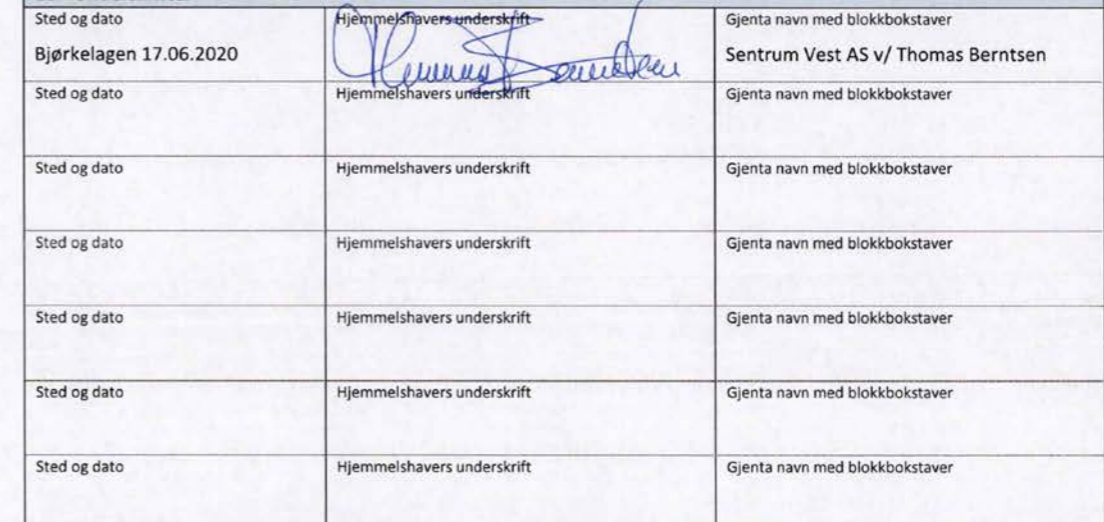 Sted og dato
Hjemmelshavers underskrift
Gjenta navn med blokkbokstaver
Bjørkelagen 17.06.2020
Thomas Berntsen
Sentrum Vest AS v/ Thomas Berntsen
Sted og dato
Hjemmelshavers underskrift
Gjenta navn med blokkbokstaver
Sted og dato
Hjemmelshavers underskrift
Gjenta navn med blokkbokstaver
Sted og dato
Hjemmelshavers underskrift
Gjenta navn med blokkbokstaver
Sted og dato
Hjemmelshavers underskrift
Gjenta navn med blokkbokstaver
Sted og dato
Hjemmelshavers underskrift
Gjenta navn med blokkbokstaver
Sted og dato
Hjemmelshavers underskrift
Gjenta navn med blokkbokstaver